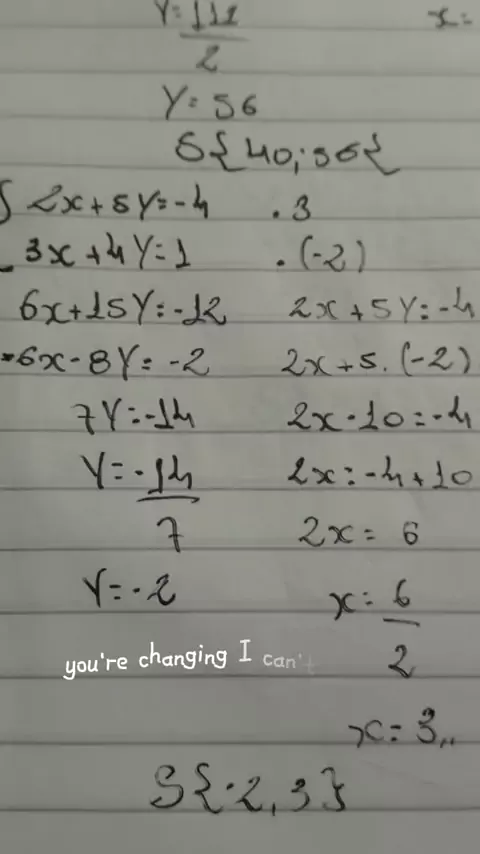 Y=112 x=
2
Y=56
S{40;56{
{ 2x+5Y=-4 .3
3x+4Y=1 .(-2)
6x+15Y=-12 2x+5Y=-4
-6x-8Y=-2 2x+5.(-2)
7Y=-14 2x-10=-4
Y=-14 2x=-4+10
7 2x=6
Y=-2 x=6
you're changing I can't 2
x=3,,
S{-2,3}